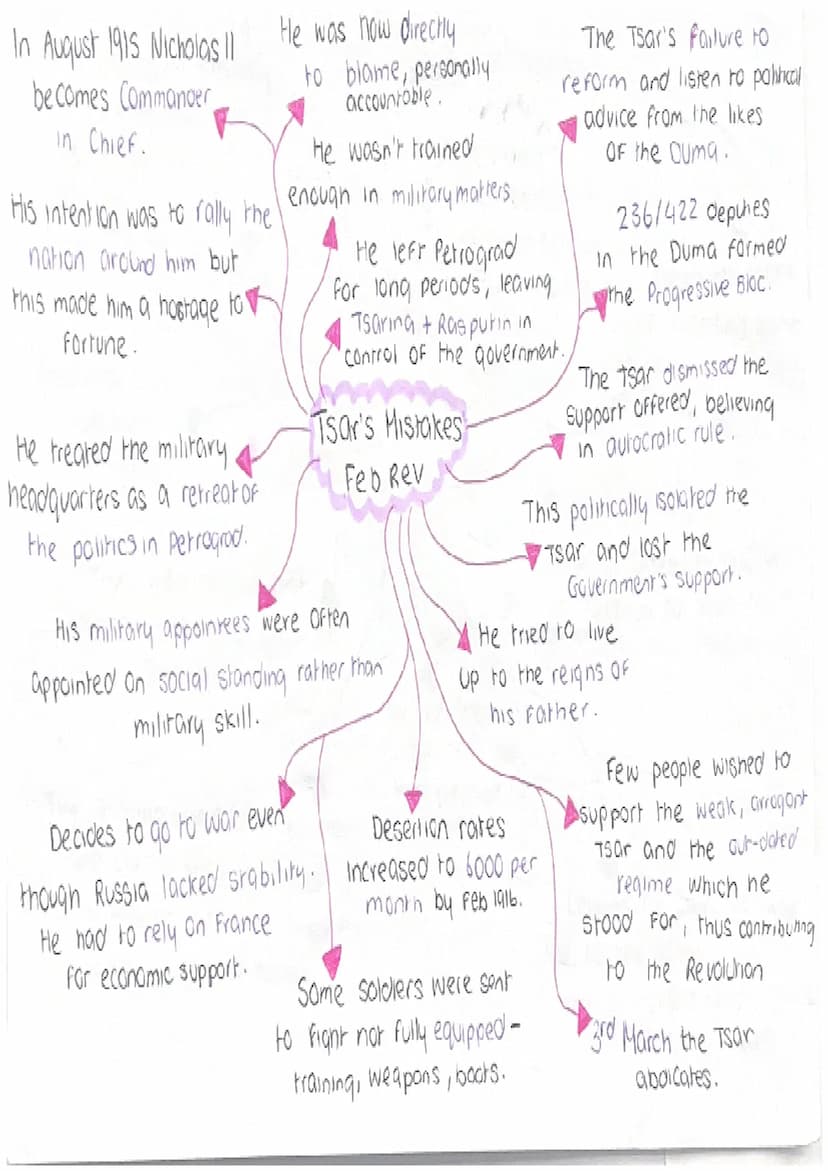 In August 1915 Nicholas II
becomes Commander
in Chief.
He was now directly
to blame, personally
accountable.
The Tsar's failure to
reform and listen to political
advice from the likes
of the Duma.
He wasn't trained
enough in military matters.
His intention was to rally the
nation around him but
this made him a hostage to
fortune.
He left Petrograd
for long periods, leaving
Tsarina + Rasputin in
control of the government.
236/422 deputies
in the Duma formed
the Progressive Bloc.
The Tsar dismissed the
support offered, believing
in autocratic rule.
Tsar's Mistakes
Feb Rev
He treated the military
headquarters as a retreat of
the politics in Petrograd.
This politically isolated the
Tsar and lost the
Government's support.
His military appointees were often
appointed on social standing rather than
military skill.
He tried to live
up to the reigns of
his father.
Decides to go to war even
though Russia lacked stability.
He had to rely on France
for economic support.
Desertion rates
increased to 6000 per
month by Feb 1916.
Few people wished to
support the weak, arrogant
Tsar and the out-dated
regime which he
stood for, thus contributing
to the Revolution
Some soldiers were sent
to fight not fully equipped -
training, weapons, boots.
3rd March the Tsar
abdicates.